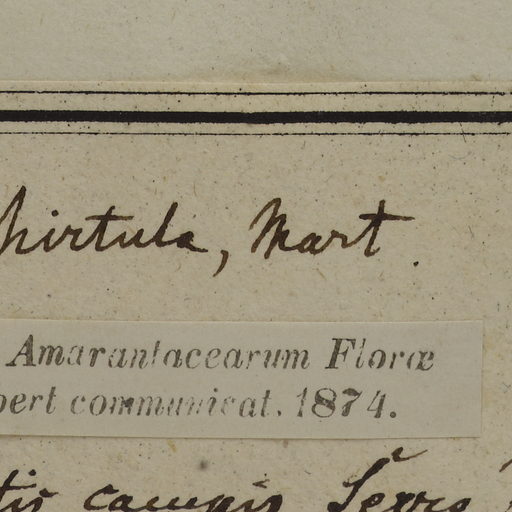 hirtula, Mart.
Amarantacearum Floræ
bert communicat. 1874.
campis Serro